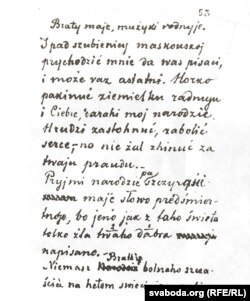 55
Braty maje, mużyki rodnyje.
I pad szubienicy maskouskoj
prychodzić mnie da was pisaci,
i może raz astatni. Horko
pakinuć ziemielku radnuju
i Ciebie, daražy moj narodzie.
Hrudzi zastohnuć, zabolić
serce,— no nie żal zhinuć za
twaju praudu.—
Pryjmi narodzie pa szczyrości
maje słowo predśmier-
tnoje, bo jeno jak z taho świeta
tolko dla twaho dabra
napisano.
Niemasz Bratkie bolnaho szcza-
ścia na hetom świeci
svaboda.org (RFE/RL)